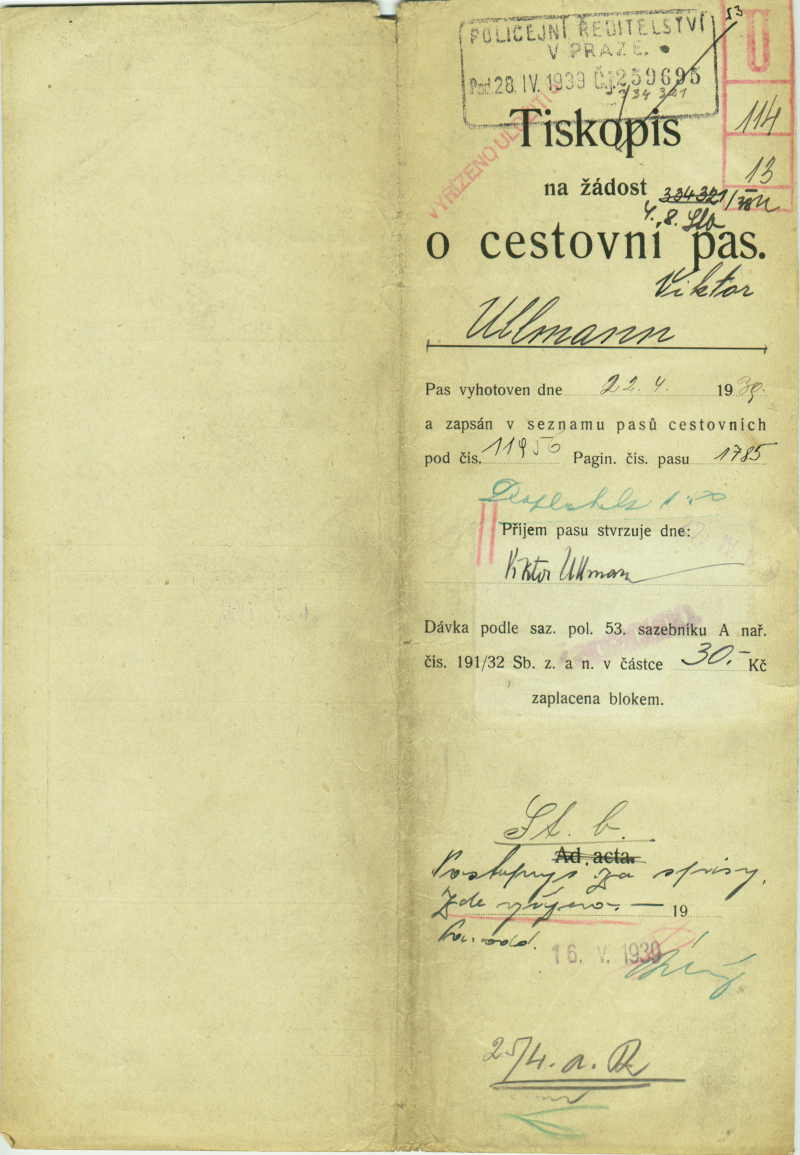 53
POLICEJNÍ ŘEDITELSTVÍ
V PRAZE.
Pod. 28. IV. 1939 Čj. 259695
334 321
U
114
13
VYŘÍZENO
Tiskopis
na žádost 334321/38
4. 8.
o cestovní pas.
Viktor
Ullmann
Pas vyhotoven dne 22. 4. 1939.
a zapsán v seznamu pasů cestovních
pod čís. 11950 Pagin. čís. pasu 1785
Příjem pasu stvrzuje dne:
Viktor Ullmann
Dávka podle saz. pol. 53. sazebníku A nař.
čís. 191/32 Sb. z. a n. v částce 30.- Kč
zaplacena blokem.
St. b.
Ad acta.
za spisy.
Zde 19
16. V. 1939
25/4. a. R